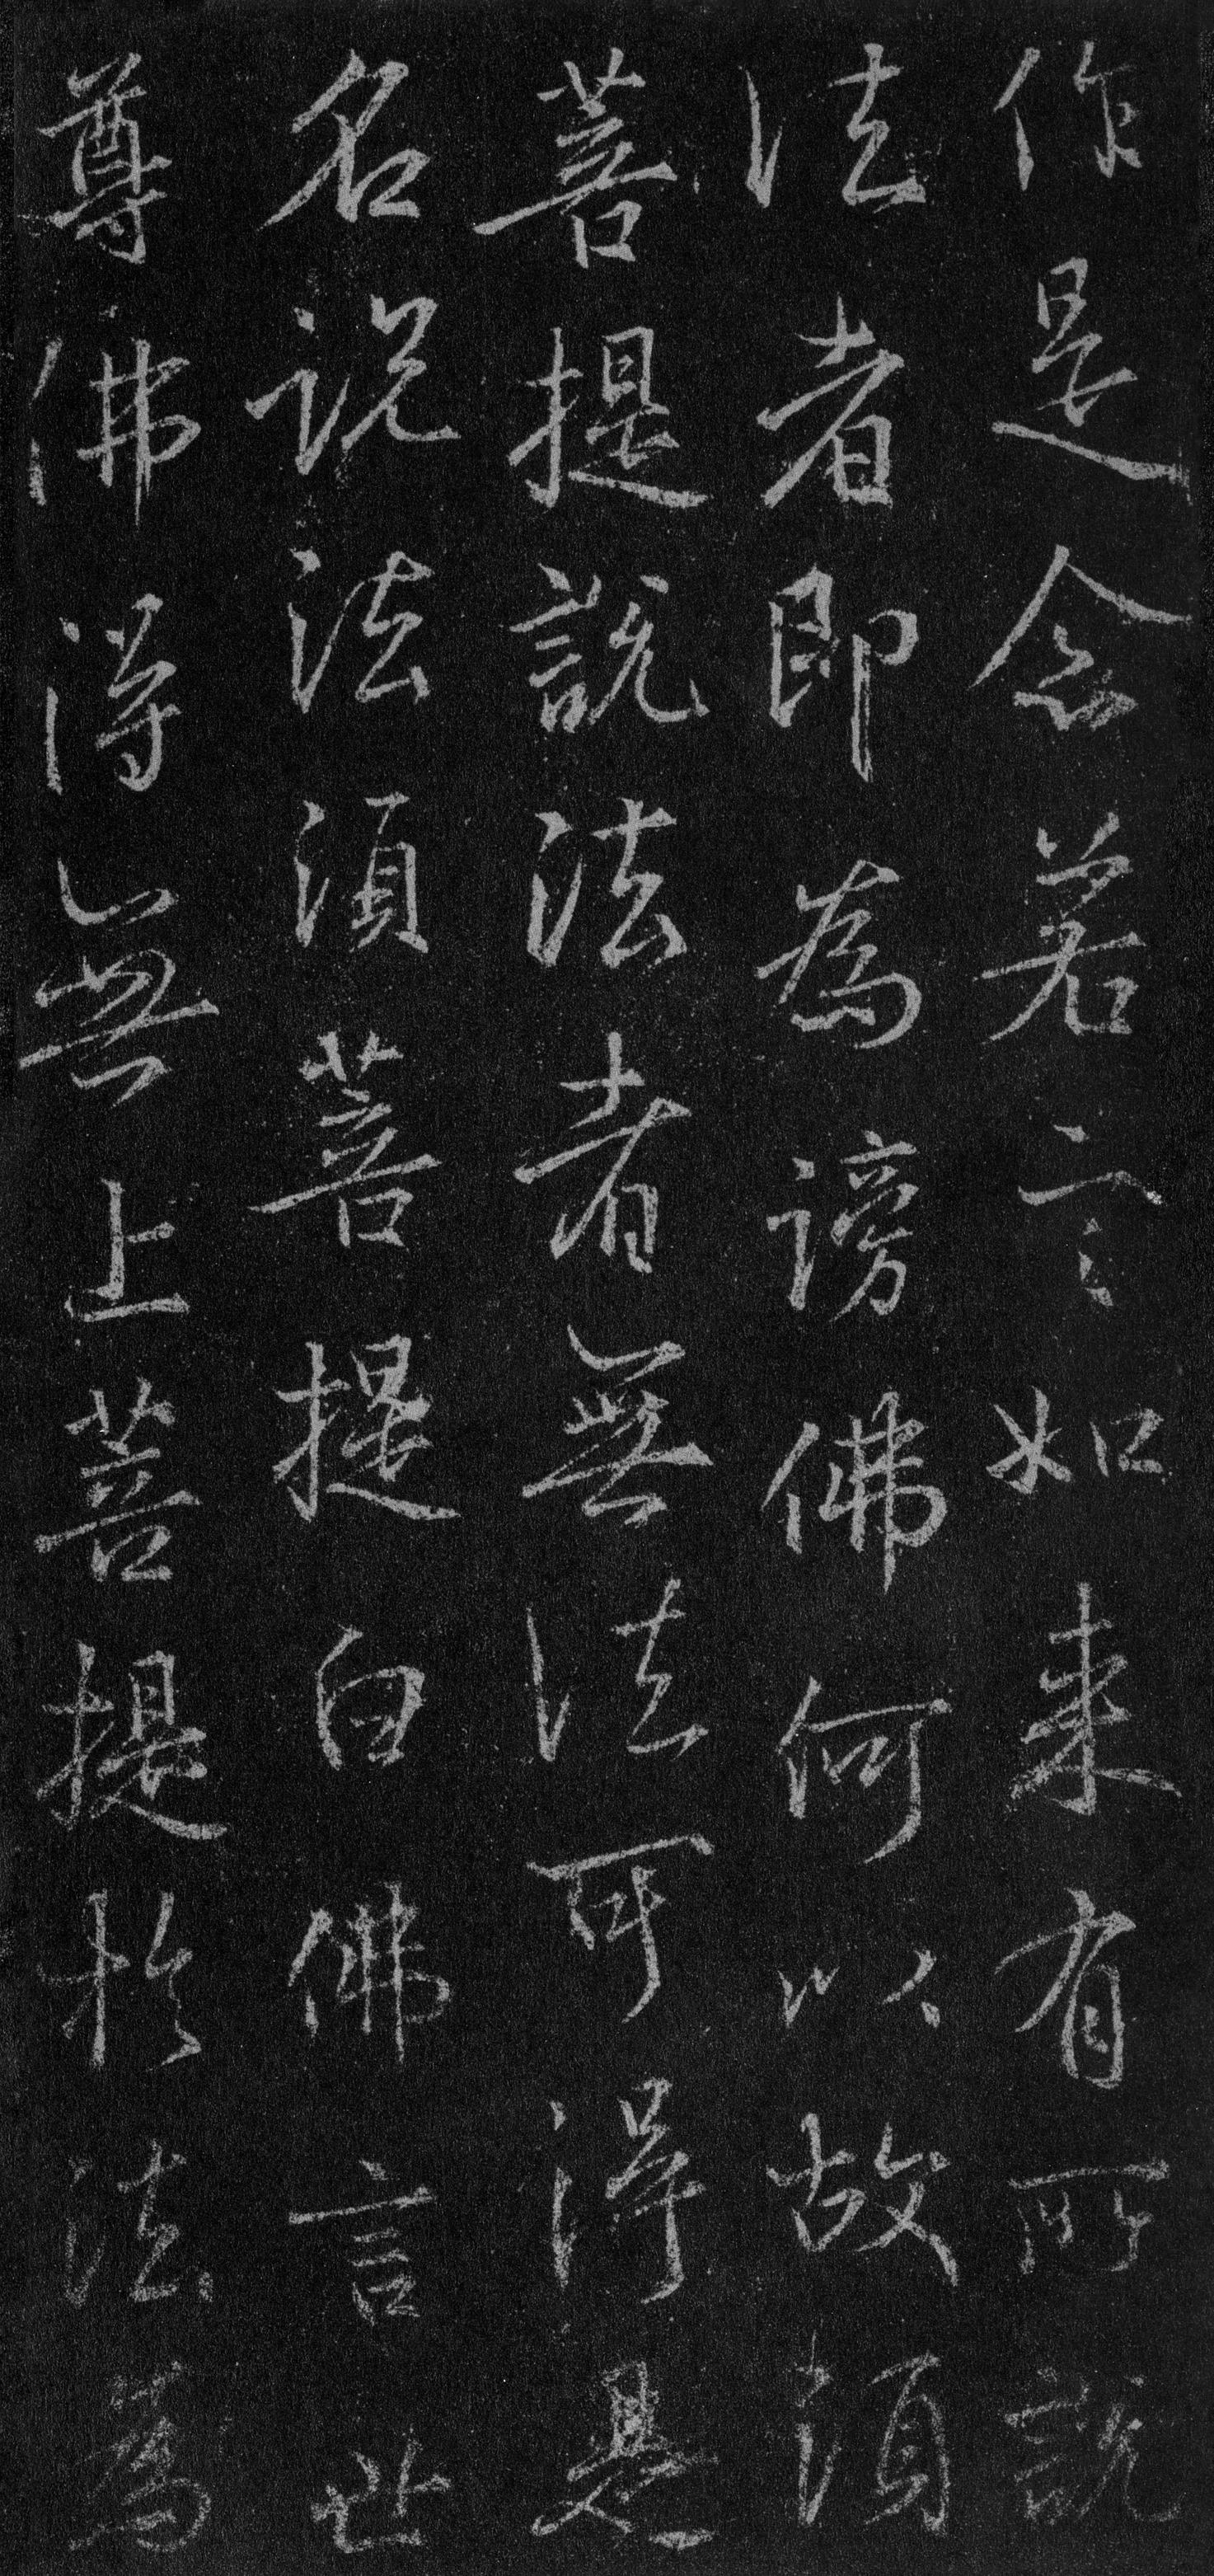 作是念若言如来有所說
法者即為謗佛何以故須
菩提說法者無法可得是
名說法須菩提白佛言世
尊佛得無上菩提於法為